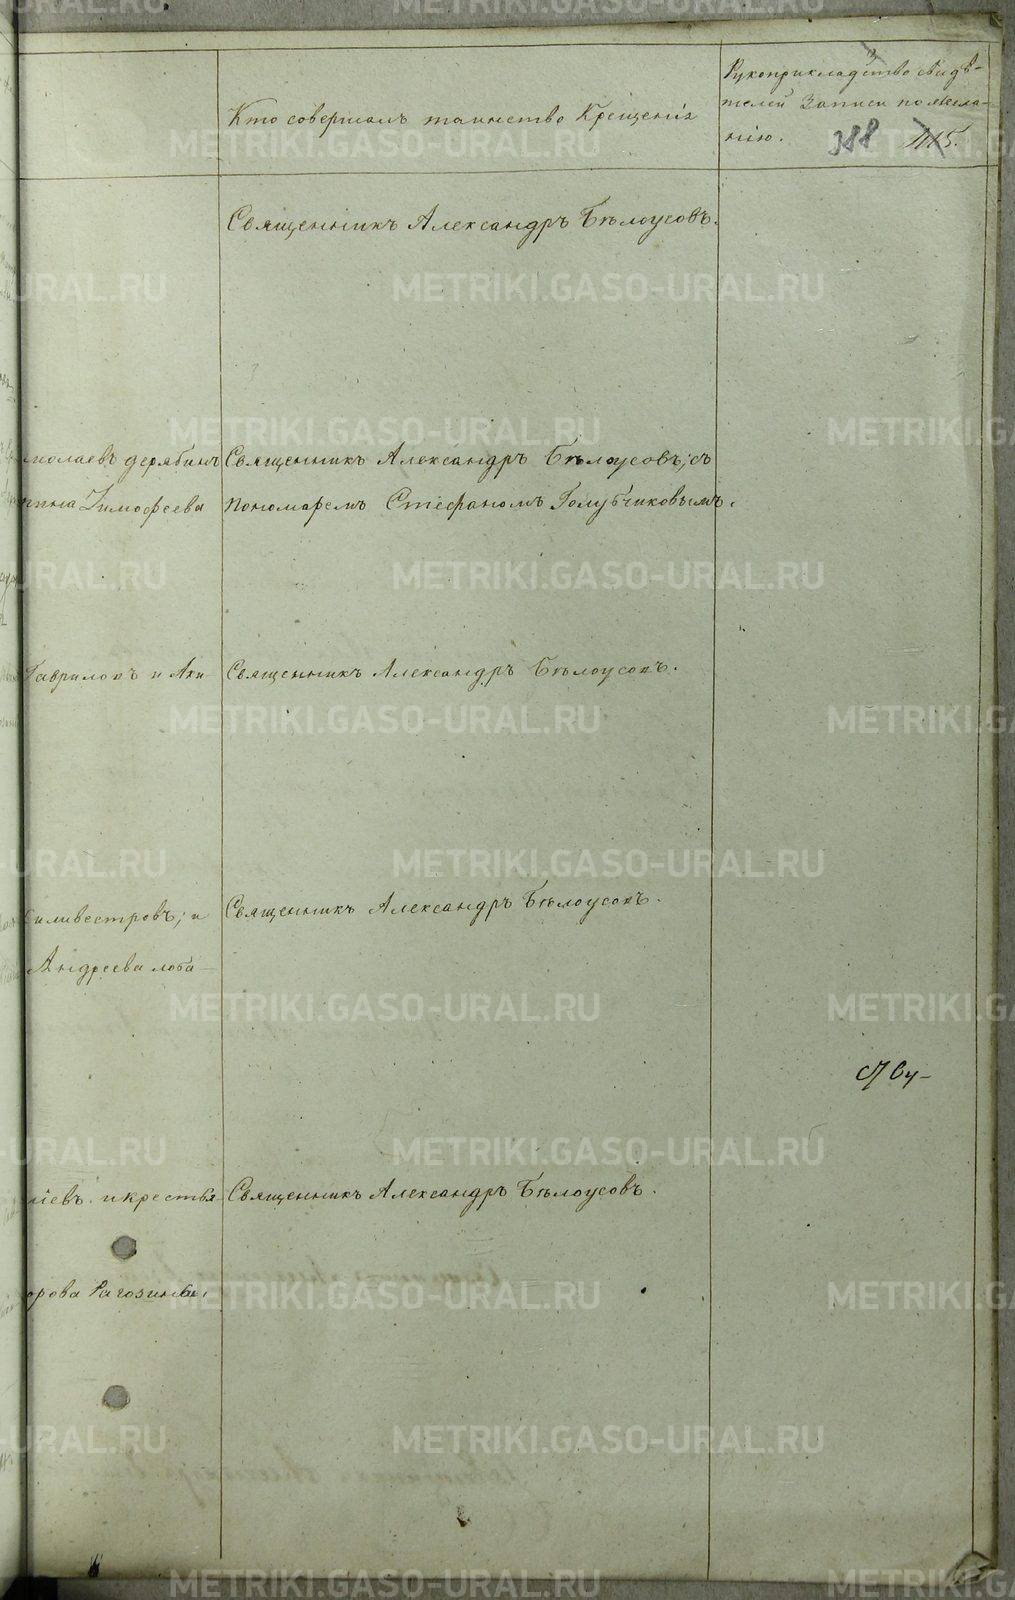 Кто совершалъ таинство Крещенія
Рукоприкладство свидѣ-
телей Записи по жела-
нію. 388 1115.
Священникъ Александръ Бѣлоусовъ.
молаевъ дерябинъ Священникъ Александръ Бѣлоусовъ; съ
Тимофеева пономаремъ Стефаномъ Голубчиковымъ.
Гавриловъ и Аки Священникъ Александръ Бѣлоусовъ.
Силивестровъ; и Священникъ Александръ Бѣлоусовъ.
Андреева лоба-
ліевъ и крестья Священникъ Александръ Бѣлоусовъ.
орова Рагозина.
METRIKI.GASO-URAL.RU